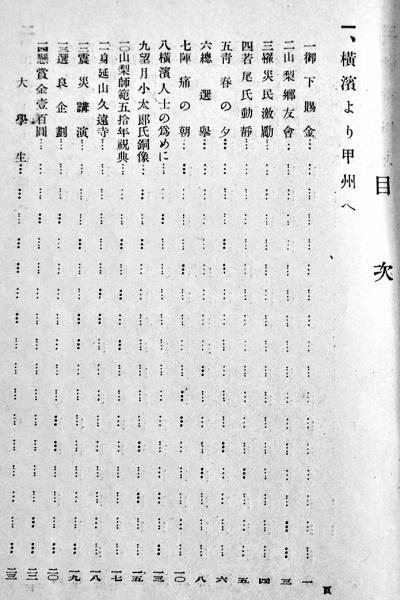 目次
一、橫濱より甲州へ
頁
一御下賜金……一
二山梨鄕友會……三
三罹災民激勵……四
四若尾氏動靜……五
五靑春の夕……六
六總選擧……八
七陣痛の朝……一〇
八橫濱人士の爲めに……一三
九望月小太郞氏銅像……一五
一〇山梨師範五拾年祝典……一七
一一身延山久遠寺……一八
一二震災講演……一九
一三選良企劃……二〇
一四懸賞金壹百圓……
大學生……二三